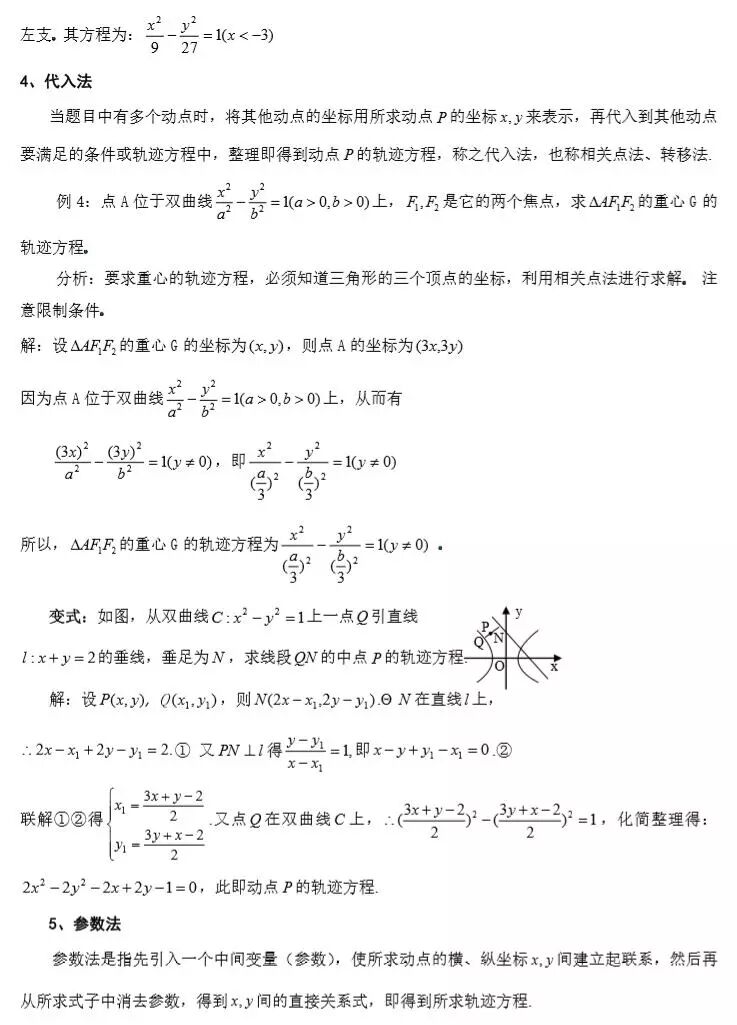 左支。其方程为：x²/9 − y²/27 = 1(x < −3)
4、代入法
当题目中有多个动点时，将其他动点的坐标用所求动点 P 的坐标 x, y 来表示，再代入到其他动点
要满足的条件或轨迹方程中，整理即得到动点 P 的轨迹方程，称之代入法，也称相关点法、转移法.
例 4：点 A 位于双曲线 x²/a² − y²/b² = 1(a > 0, b > 0) 上，F₁, F₂ 是它的两个焦点，求 ΔAF₁F₂ 的重心 G 的
轨迹方程。
分析：要求重心的轨迹方程，必须知道三角形的三个顶点的坐标，利用相关点法进行求解。 注
意限制条件。
解：设 ΔAF₁F₂ 的重心 G 的坐标为 (x, y)，则点 A 的坐标为 (3x,3y)
因为点 A 位于双曲线 x²/a² − y²/b² = 1(a > 0, b > 0) 上，从而有
(3x)²/a² − (3y)²/b² = 1(y ≠ 0)，即 x²/(a/3)² − y²/(b/3)² = 1(y ≠ 0)
所以，ΔAF₁F₂ 的重心 G 的轨迹方程为 x²/(a/3)² − y²/(b/3)² = 1(y ≠ 0) 。
变式：如图，从双曲线 C : x² − y² = 1 上一点 Q 引直线
l : x + y = 2 的垂线，垂足为 N，求线段 QN 的中点 P 的轨迹方程.
y
P
Q
N
O
x
解：设 P(x, y), Q(x₁, y₁)，则 N(2x − x₁,2y − y₁).Θ N 在直线 l 上，
∴ 2x − x₁ + 2y − y₁ = 2.① 又 PN ⊥ l 得 (y − y₁)/(x − x₁) = 1, 即 x − y + y₁ − x₁ = 0.②
联解①②得 { x₁ = (3x + y − 2)/2 y₁ = (3y + x − 2)/2 .又点 Q 在双曲线 C 上，∴ ((3x + y − 2)/2)² − ((3y + x − 2)/2)² = 1，化简整理得：
2x² − 2y² − 2x + 2y − 1 = 0，此即动点 P 的轨迹方程.
5、参数法
参数法是指先引入一个中间变量（参数），使所求动点的横、纵坐标 x, y 间建立起联系，然后再
从所求式子中消去参数，得到 x, y 间的直接关系式，即得到所求轨迹方程.